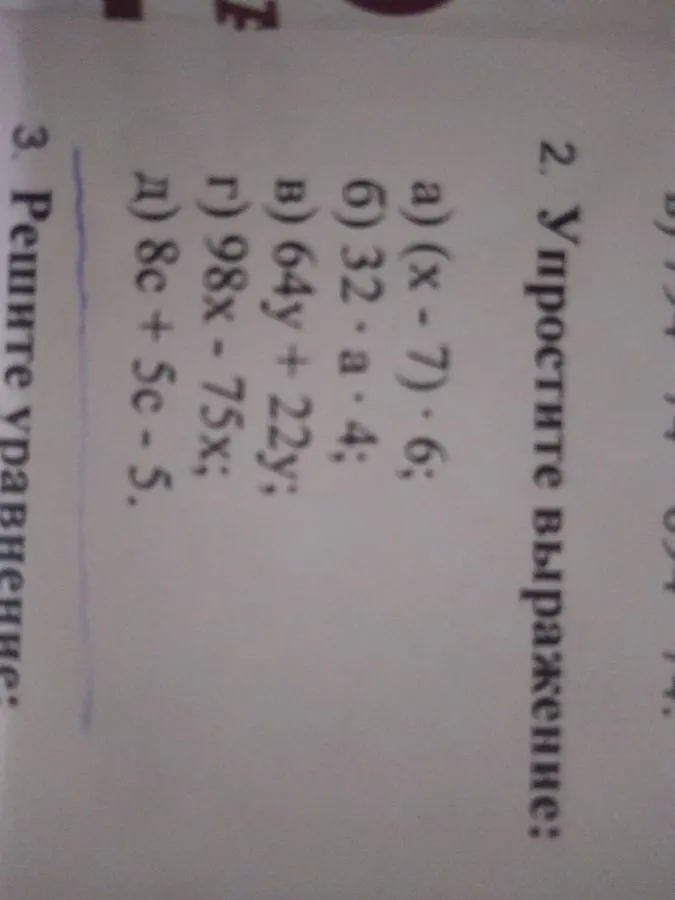 2. Упростите выражение:
а) (х - 7) · 6;
б) 32 · а · 4;
в) 64у + 22у;
г) 98х - 75х;
д) 8с + 5с - 5.
3. Решите уравнение: